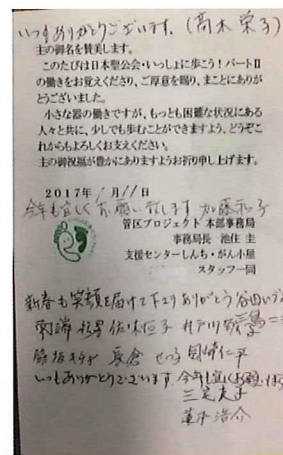 いつもありがとうございます。(高木栄子)
主の御名を賛美します。
このたびは日本聖公会・いっしょに歩こう!パートⅡ
の働きをお覚えくださり、ご厚意を賜り、まことにありが
とうございました。
小さな器の働きですが、もっとも困難な状況にある
人々と共に、少しでも歩むことができますよう、どうぞこ
れからもよろしくお支えください。
主の御祝福が豊かにありますようお祈り申し上げます。
2017年 1月11日
今年も宜しくお願い致します 加藤
管区プロジェクト 本部事務局
事務局長 池住 圭
支援センターしんち・がん小屋
スタッフ一同
新春も笑顔を届けて下さりありがとう 谷田
佐々木 子 井戸川
せつ子 岡崎仁平
いつもありがとうございます。今年も宜しくお願い
三宅
浩介